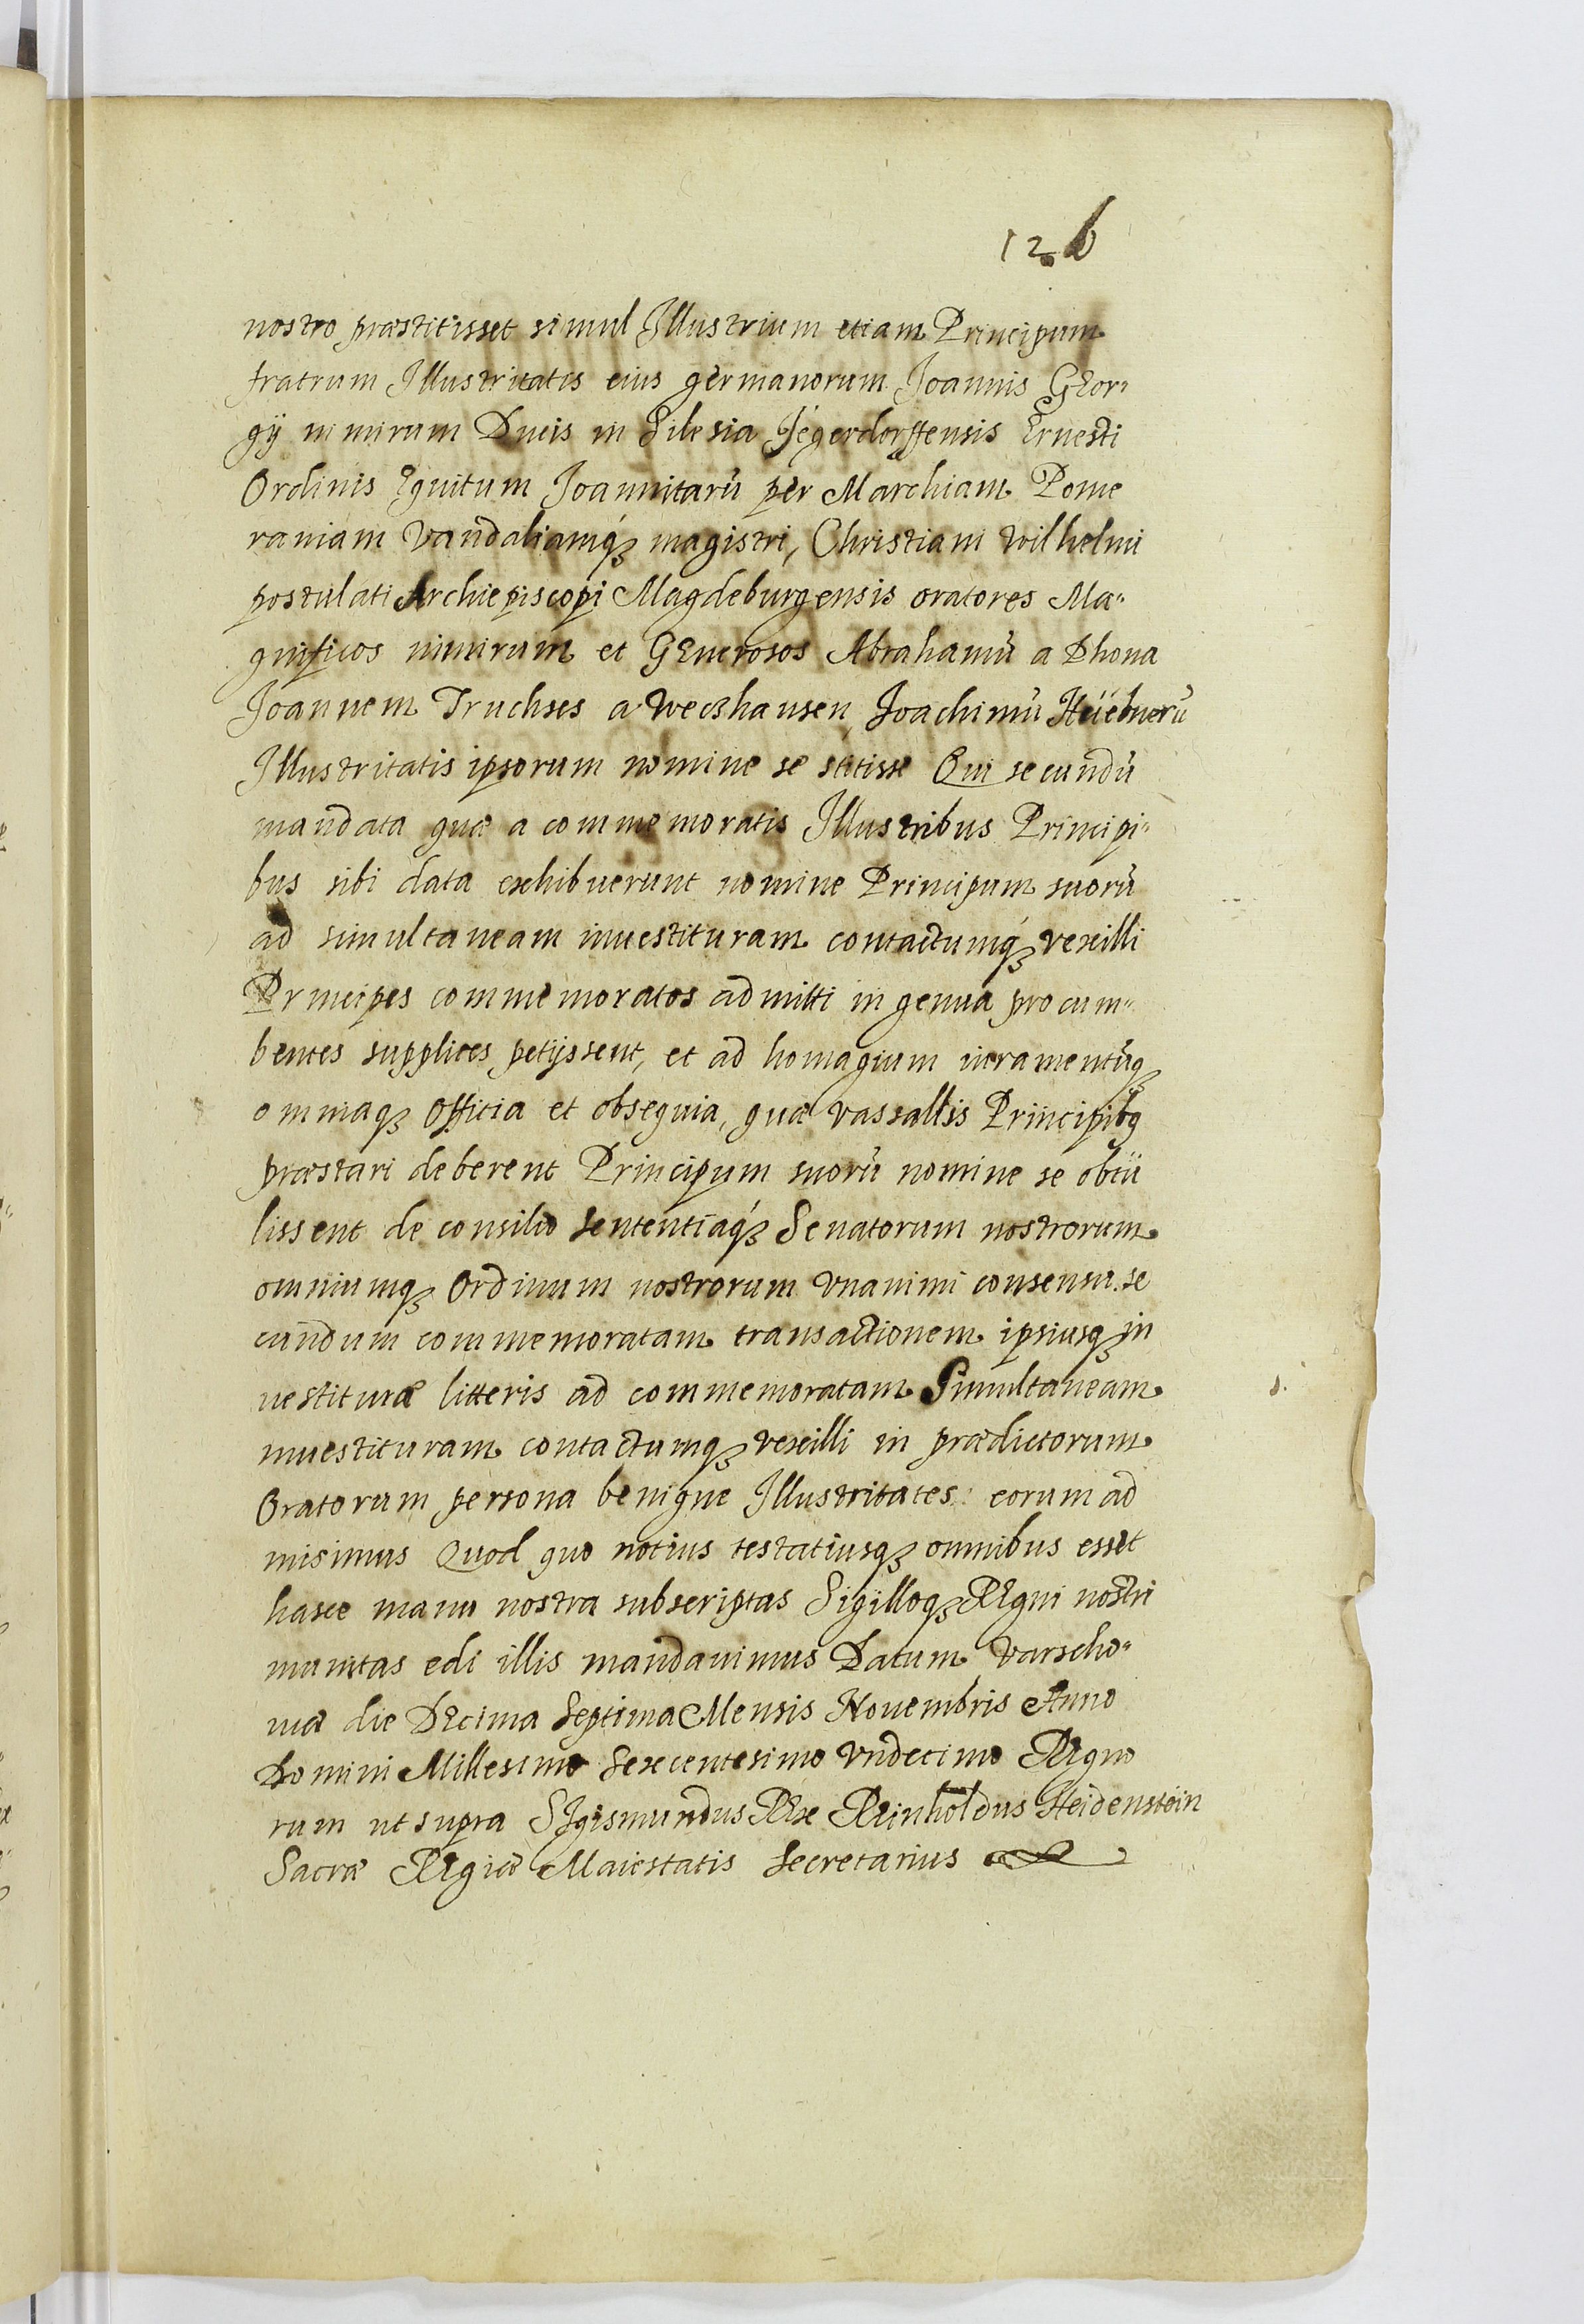 12 b
nostro præstitisset simul Illustrium etiam Principum
fratrum Illustritatis eius germanorum Joannis Geor„
gÿ nimirum Ducis in Silesia Jégerdorffensis Ernesti
Ordinis Equitum Joannitarũ per Marchiam Pome
raniam Vandaliamqꝫ magistri, Christiani Wilhelmi
postulati Archiepiscopi Magdeburgensis oratores Ma„
gnificos nimirum et Generosos Abrahamũ a Dhona
Joannem Truchses a Weczhausen, Joachimũ Hüebnerũ
Illustritatis ipsorum nomine se stitisse Qui secundũ
mandata quæ a commemoratis Illustribus Principi„
bus sibi data exhibuerunt nomine Principum suorũ
ad simultaneam inuestituram contactumqꝫ vexilli
Principes commemoratos admitti in genua procum„
bentes supplices petÿssent, et ad homagium iuramentũqꝫ
omniaqꝫ officia et obsequia, quæ vassallis Principibꝰ
præstari deberent Principum suorũ nomine se obtu
lissent de consilio sententiaqꝫ Senatorum nostrorum
omniumqꝫ Ordinum nostrorum vnanimi consensu se
cundum commemoratam transactionem ipsiusqꝫ in
uestituræ litteris ad commemoratam Simultaneam
inuestituram contactumqꝫ vexilli in prædictorum
Oratorum persona benigne Illustritates eorum ad
misimus Quod quo notius testatiusqꝫ omnibus esset
hasce manu nostra subscriptas Sigilloqꝫ Regni nostri
munitas edi illis mandauimus Datum Varscho„
uiæ die Decima Septima Mensis Nouembris Anno
Domini Millesimo Sexcentesimo Vndecimo Regno
rum ut supra Sigismundus Rex Reinholdus Heidenstein
Sacræ Regiæ Maiestatis Secretarius